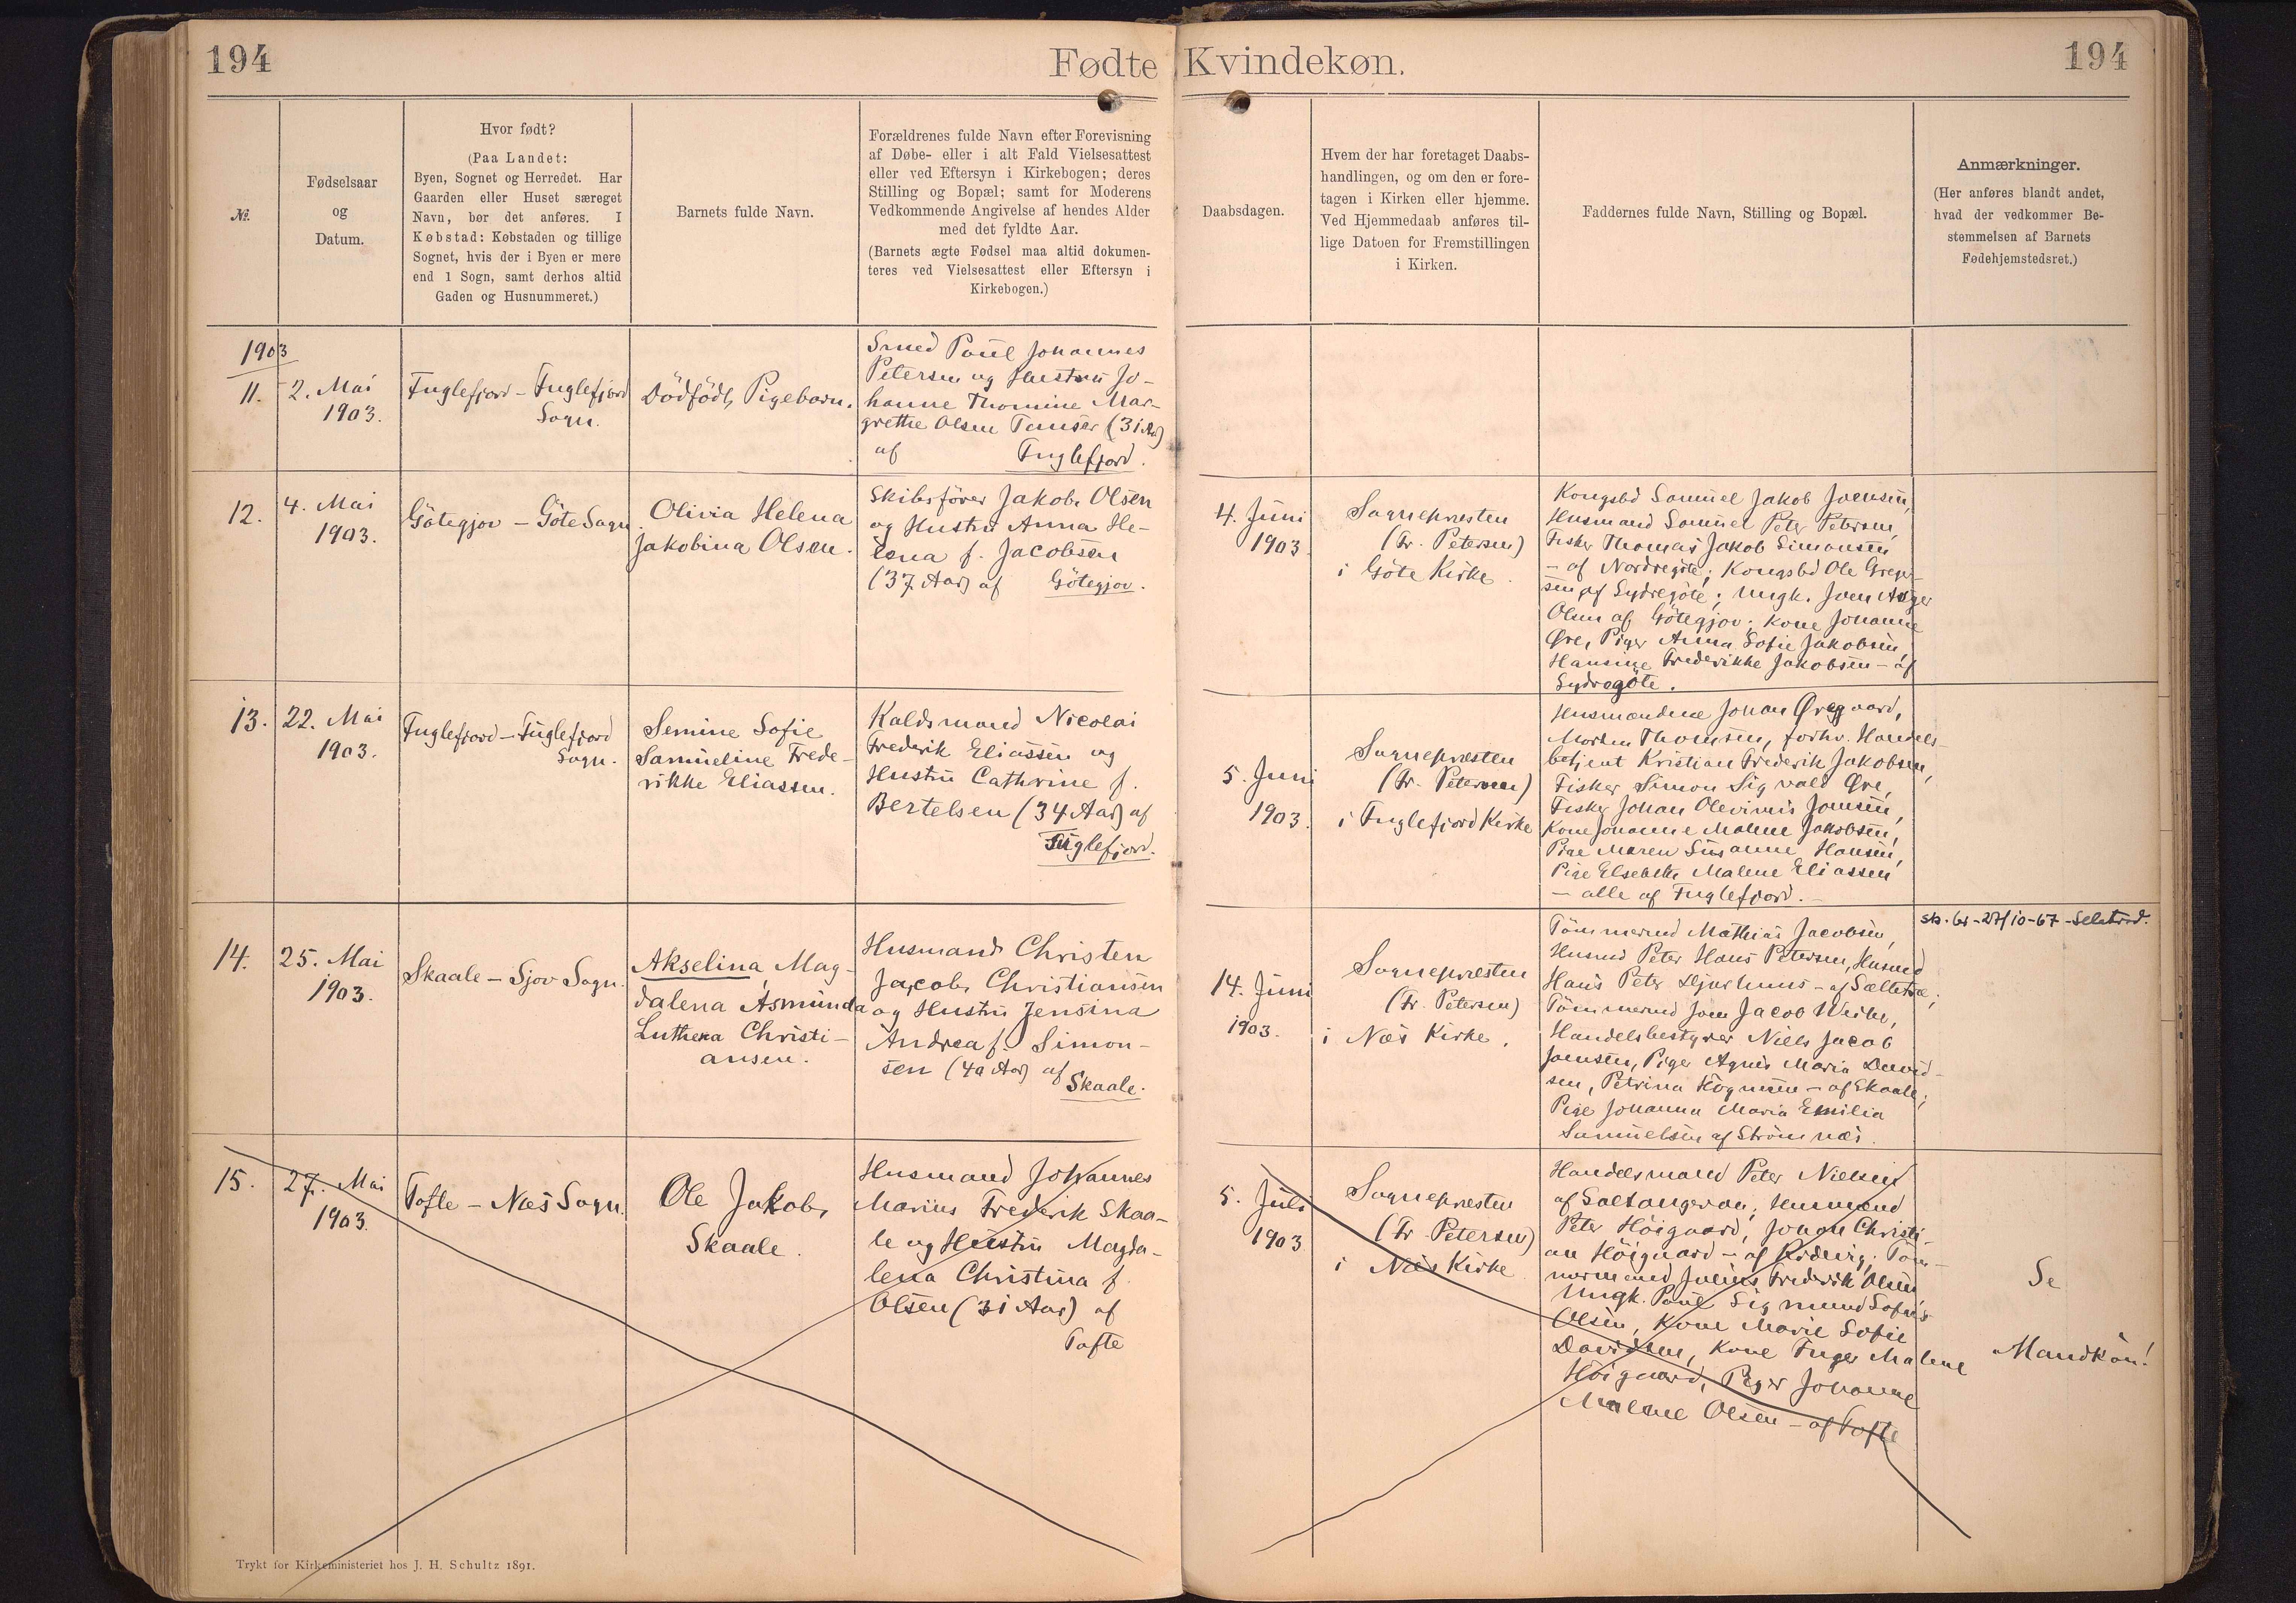 194
Fødte
Kvindekøn.
194
№.
Fødselsaar
og
Datum.
Hvor født?
(Paa Landet:
Byen, Sognet og Herredet. Har
Gaarden eller Huset særeget
Navn, bør det anføres. I
Købstad: Købstaden og tillige
Sognet, hvis der i Byen er mere
end 1 Sogn, samt derhos altid
Gaden og Husnummeret.)
Barnets fulde Navn.
Forældrenes fulde Navn efter Forevisning
af Døbe- eller i alt Fald Vielsesattest
eller ved Eftersyn i Kirkebogen; deres
Stilling og Bopæl; samt for Moderens
Vedkommende Angivelse af hendes Alder
med det fyldte Aar.
(Barnets ægte Fødsel maa altid dokumen-
teres ved Vielsesattest eller Eftersyn i
Kirkebogen.)
Daabsdagen.
Hvem der har foretaget Daabs-
handlingen, og om den er fore-
tagen i Kirken eller hjemme.
Ved Hjemmedaab anføres til-
lige Datoen for Fremstillingen
i Kirken.
Faddernes fulde Navn, Stilling og Bopæl.
Anmærkninger.
(Her anføres blandt andet,
hvad der vedkommer Be-
stemmelsen af Barnets
Fødehjemstedsret.)
1903
11.
2. Mai
1903.
Fuglefjord - Fuglefjord
Sogn.
Dödfödt Pigebarn.
Smed Poul Johannes
Petersen og Hustru Jo-
hanne Thomine Mar-
grethe Olsen (31 Aar)
af Fuglefjord.
12.
4. Mai
1903.
Götegjov - Göte Sogn.
Olivia Helena
Jakobina Olsen.
Skibsförer Jakob Olsen
og Hustru Anna He-
lena f. Jacobsen
(37 Aar) af Götegjov.
4. Juni
1903
Sognepræsten
(Fr. Petersen)
i Göte Kirke.
Kongsbd Samuel Jakob Joensen,
Husmand Samuel Peter Petersen,
Fisker Thomas Jakob Simonsen
- af Nordregöte; Kongsbd Ole Greger-
sen af Sydregöte; Ungk. Joen
Olsen af Götegjov; Kone Johanne
Øre, Piger Anna Sofie Jakobsen,
Hansine Frederikke Jakobsen - af
Sydregöte.
13.
22. Mai
1903.
Fuglefjord - Fuglefjord
Sogn.
Semine Sofie
Samueline Frede-
rikke Eliassen.
Kaldsmand Nicolai
Frederik Eliassen og
Hustru Cathrine f.
Bertelsen (34 Aar) af
Fuglefjord.
5. Juni
1903.
Sognepræsten
(Fr. Petersen)
i Fuglefjord Kirke
Husmændene Johan Øregaard,
Morten Thomsen, forhv. Handels-
betjent Kristian Frederik Jakobsen,
Fisker Simon Sigvald Øre,
Fisker Johan Olevinus Joensen,
Kone Johanne Malene Jakobsen,
Pige Maren Susanne Hansen,
Pige Elsebeth Malene Eliassen
- alle af Fuglefjord.
14.
25. Mai
1903.
Skaale - Sjov Sogn.
Akselina Mag-
dalena Asmunda
Luthera Christi-
ansen.
Husmand Christen
Jacob Christiansen
og Hustru Jensina
Andrea f. Simon-
sen (40 Aar) af
Skaale.
14. Juni
1903.
Sognepræsten
(Fr. Petersen)
i Næs Kirke.
Tömmermd Mathias Jacobsen,
Husmd Peter Hans Petersen, Husmd
Hans Peter Djurhuus - af Sæltetræ;
Tömmermd Joen Jacob Weihe,
Handelsbestyrer Niels Jacob
Joensen, Piger Agnes Maria David-
sen, Petrina Högnesen - af Skaale;
Pige Johanna Maria Emilia
Samuelsen af Strömnæs.
15.
27. Mai
1903.
Tofte - Næs Sogn.
Ole Jakob
Skaale.
Husmand Johannes
Marius Frederik Skaa-
le og Hustru Magda-
lena Christina f.
Olsen (31 Aar) af
Tofte
5. Juli
1903
Sognepræsten
(Fr. Petersen)
i Næs Kirke
Handelsmand Peter Nielsen
af Saltangeraa; Husmænd
Peter Höigaard, Johan Christi-
an Höigaard - af Ridevig; Töm-
mermænd Julius Frederik Olsen,
Ungk. Poul Sigmund Sofus
Olsen, Kone Marie Sofie
Davidsen, Kone Inger Malene
Höigaard, Piger Johanne
Malene Olsen - af Tofte
Se
Mandkön!
Trykt for Kirkeministeriet hos J. H. Schultz 1891.